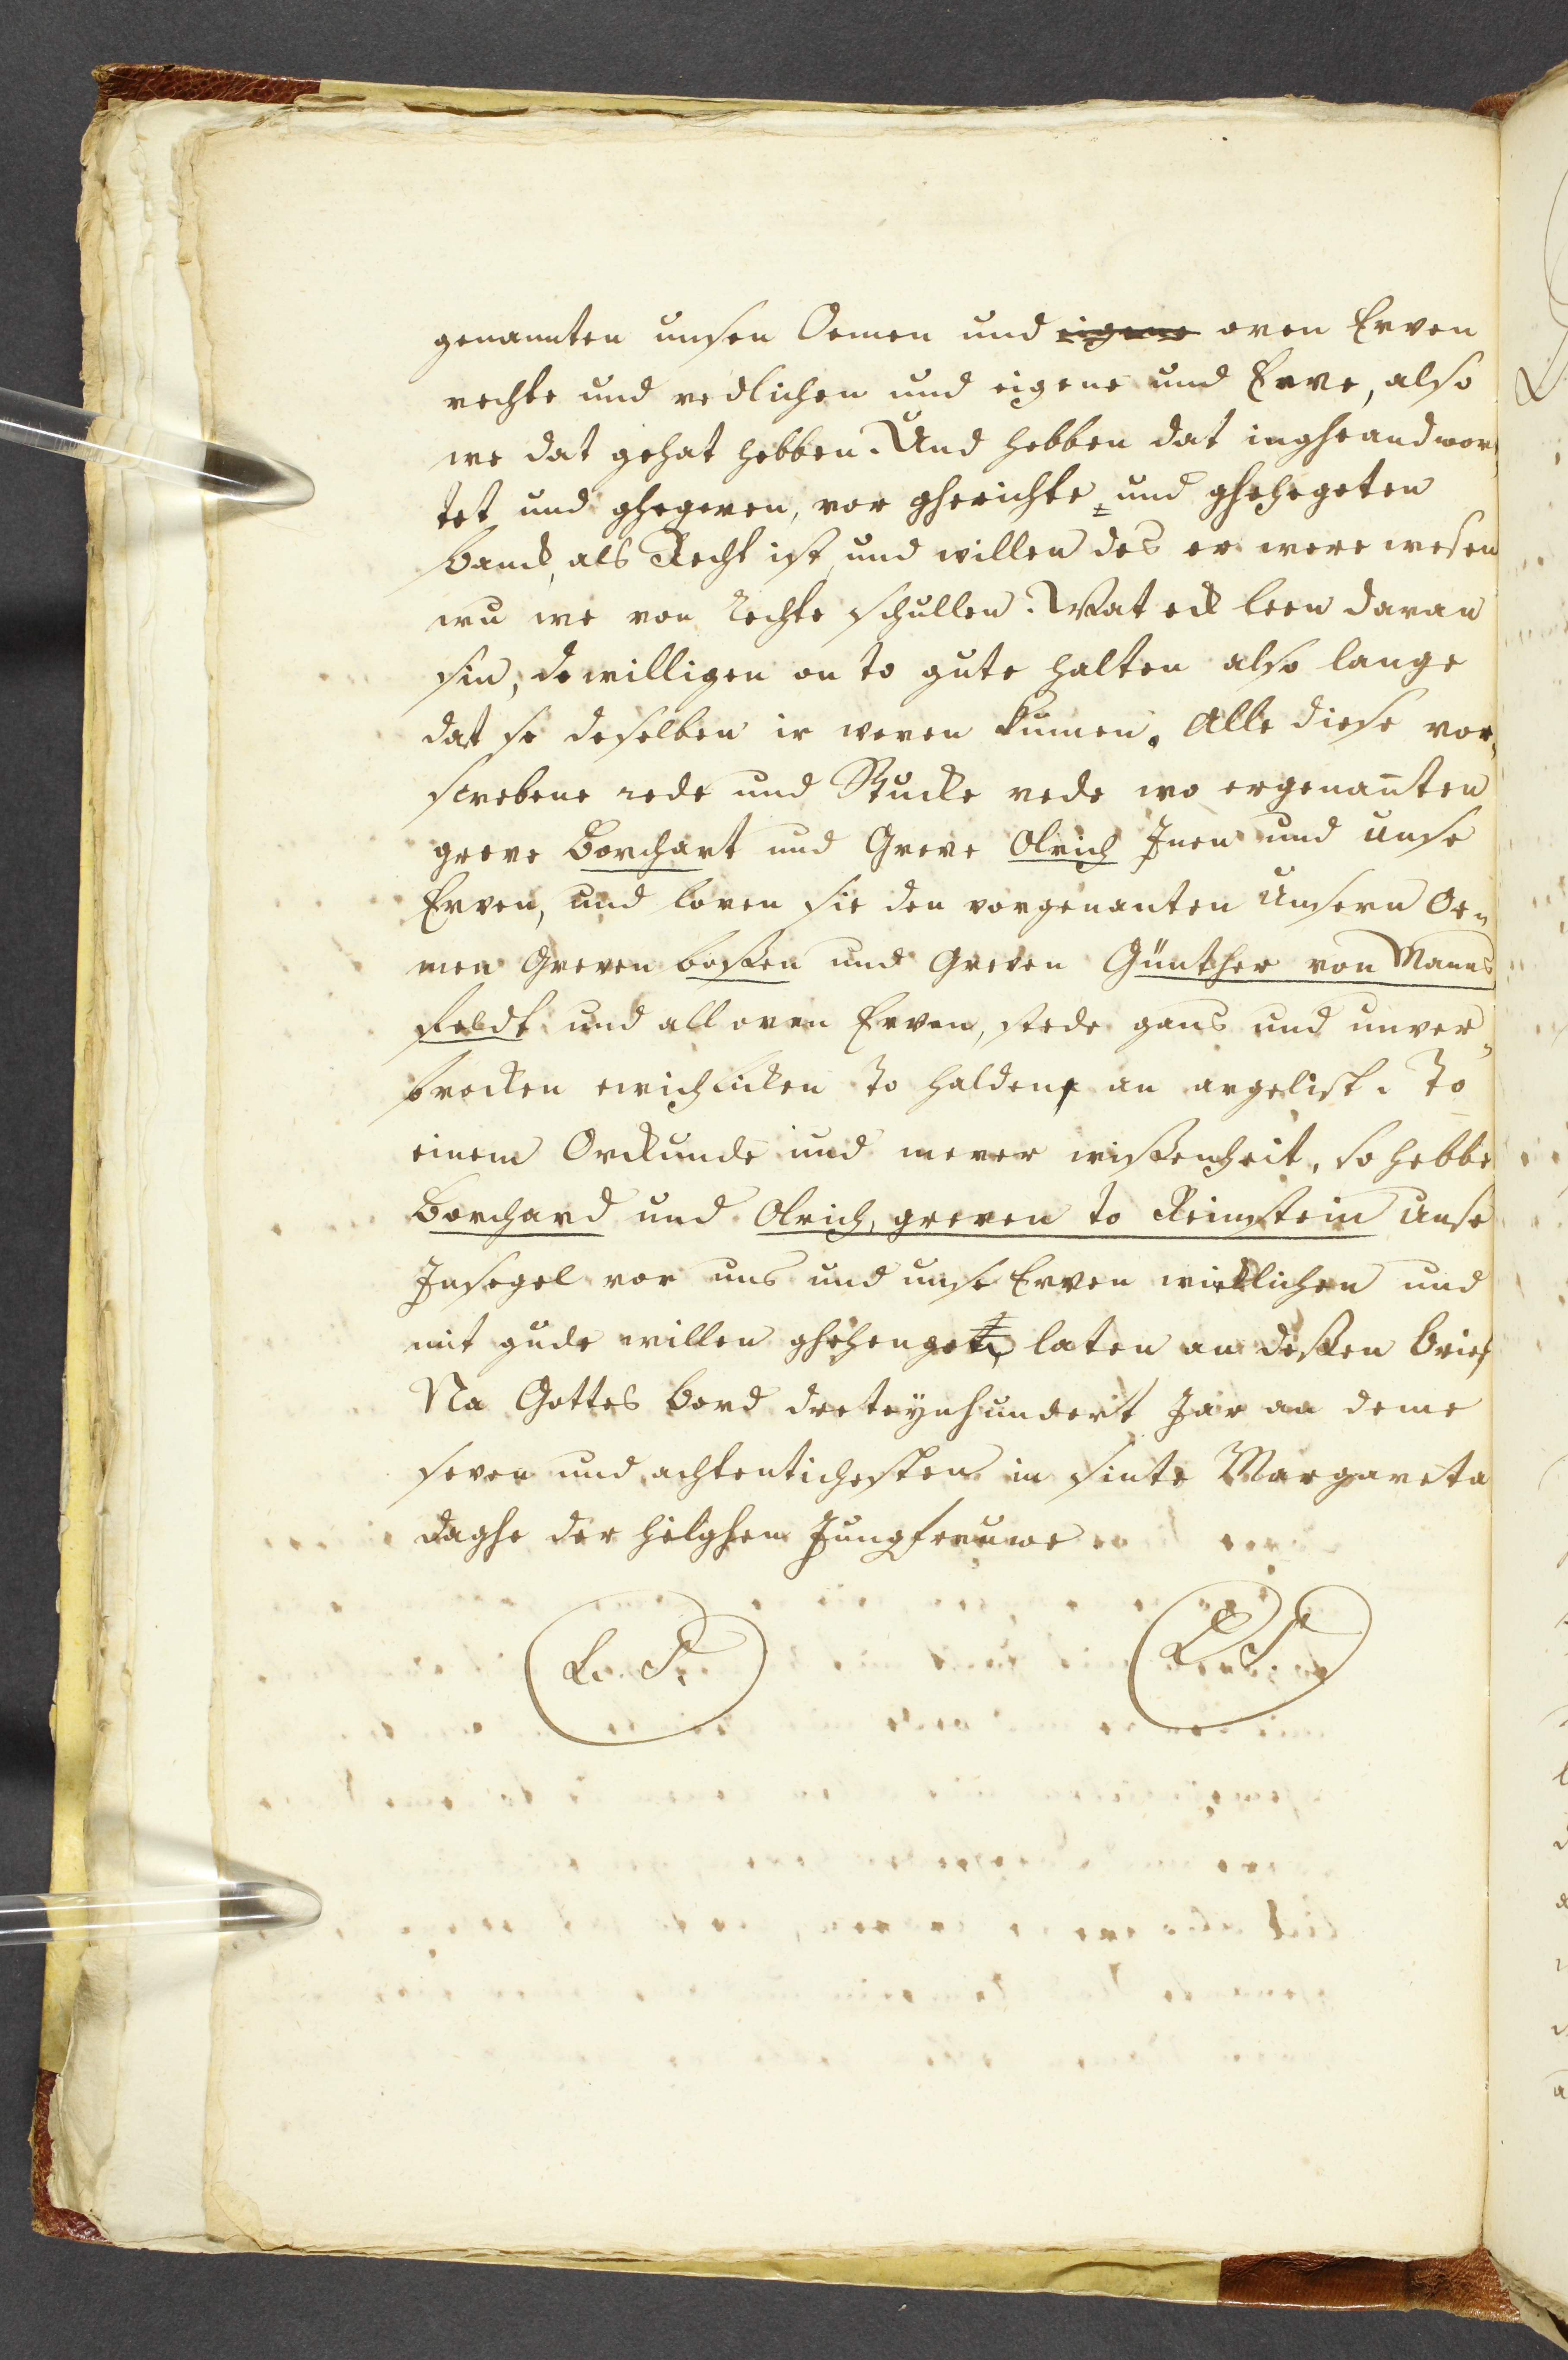 genannten unsen Oemen und eigene oren Erven
rechte und redlichen und eigene und Erve, also
we dat gehat hebben. Und hebben dat ingheandwor,
tet und ghegeven, vor gherichte und ghehegeten
banck, als Recht ist, und willen des er were wesen
wu we von rechte schullen. Wat eck leen daran
sin, de willigen on to gute halten also lange
dat se deselben ir weren kumen. Alle diese vor,
screbene rede und Stucke rede wo ergenanten
greve Borchart und Greve Olrich Inen und unse
Erven, und loven sie den vorgenanten Unsern Oe,
men Greven bossen und Greven Günther von Manns
feldt und all oren Erven, stede gans und unver,
brocken ewichlicken to halden, an argelist. To
einem Orckunde und merer wissenheit, so hebbe
Borchard und Olrich, greven to Reinstein Unse
Insegel vor uns und unse Erven wicklichen und
mit gude willen ghehenget laten an dessen brief
Na Gottes bord dreteynhundert Jar an deme
seven und achtentichesten in sinte Margareta
daghe der hilghen Jungfreuwe
L. S. L. S.